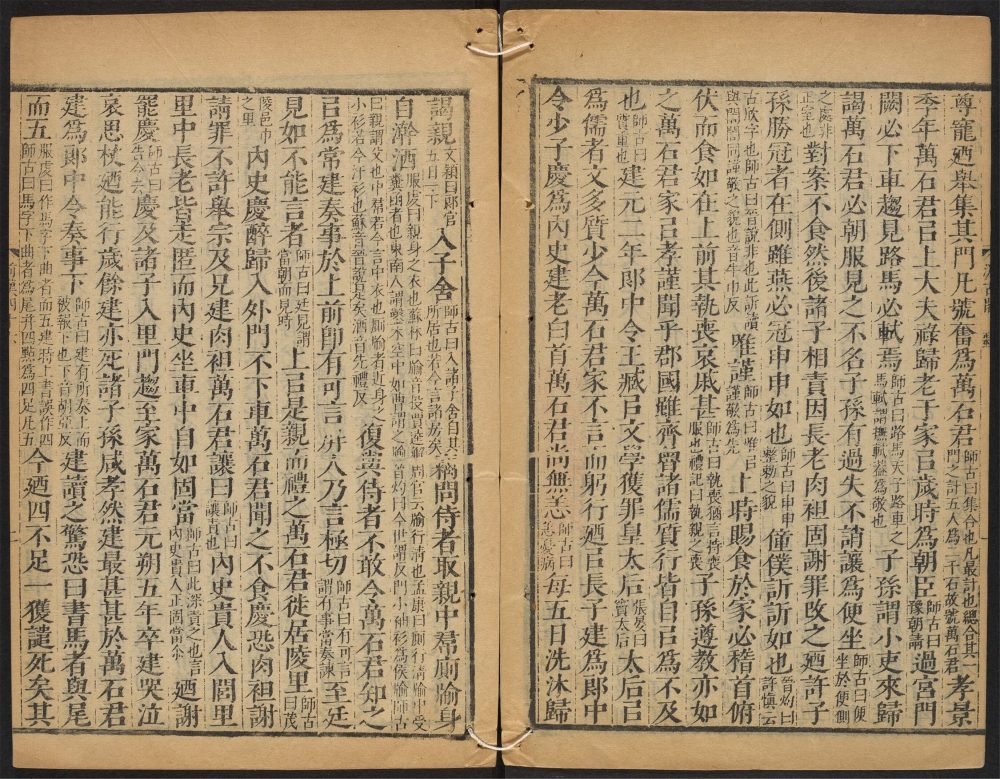 尊寵廼舉集其門凡號奮爲萬石君師古曰集合也凡最計也總合其一門之計五人爲二千石故號萬石君孝景
季年萬石君㠯上大夫祿歸老于家㠯歲時爲朝臣師古曰豫朝請過宮門
闕必下車趨見路馬必軾焉師古曰路馬天子路車之馬軾謂撫軾蓋爲敬也子孫謂小吏來歸
謁萬石君必朝服見之不名子孫有過失不誚讓爲便坐師古曰便坐於便側
之處非正室也對案不食然後諸子相責因長老肉袒固謝罪改之廼許子
孫勝冠者在側雖燕必冠申申如也師古曰申申整勑之貌僮僕訢訢如也晉灼曰許慎云
古欣字也師古曰晉說非也此訢讀與誾誾同謹敬之貌也音牛巾反唯謹師古曰唯㠯謹敬爲先上時賜食於家必稽首俯
伏而食如在上前其執喪哀戚甚師古曰執喪猶言持喪服也禮記曰執親之喪子孫遵教亦如
之萬石君家㠯孝謹聞乎郡國雖齊魯諸儒質行皆自㠯爲不及
也師古曰質重也建元二年郎中令王臧㠯文學獲罪皇太后張晏曰竇太后太后㠯
爲儒者文多質少今萬石君家不言而躬行廼㠯長子建爲郎中
令少子慶爲內史建老白首萬石君尚無恙師古曰恙憂病每五日洗沐歸
謁親文穎曰郎官五日一下入子舍師古曰入諸子之舍自其所居也若今言諸房矣竊問侍者取親中帬廁牏身
自澣洒服虔曰親身之衣也蘇林曰牏音投賈逵解周官云牏行清也孟康曰廁行清牏中受糞函者也東南人謂鑿木空中如曹謂之牏晉灼曰今世謂反門小袖衫爲侯牏師古
曰親謂父也中帬若今言中衣也廁牏者近身之小衫若今汗衫也蘇音晉說是矣洒音先禮反復與侍者不敢令萬石君知之
㠯爲常建奏事於上前卽有可言屏人乃言極切師古曰有可言謂有事當奏諫至廷
見如不能言者師古曰廷見謂當朝而見時上㠯是親而禮之萬石君徙居陵里師古曰茂
陵邑中之里內史慶醉歸入外門不下車萬石君聞之不食慶恐肉袒謝
請罪不許舉宗及兄建肉袒萬石君讓曰師古曰讓責也內史貴人入閭里
里中長老皆走匿而內史坐車中自如固當師古曰此深責之也言內史貴人正固當尒廼謝
罷慶師古曰告令去慶及諸子入里門趨至家萬石君元朔五年卒建哭泣
哀思杖廼能行歲餘建亦死諸子孫咸孝然建最甚甚於萬石君
建爲郎中令奏事下師古曰建有所奏上而被報下也下音胡亞反建讀之驚恐曰書馬者與尾
而五服虔曰作馬字下曲者而五建時上書誤作四師古曰馬字下曲者爲尾并四點爲四足凡五今廼四不足一獲譴死矣其